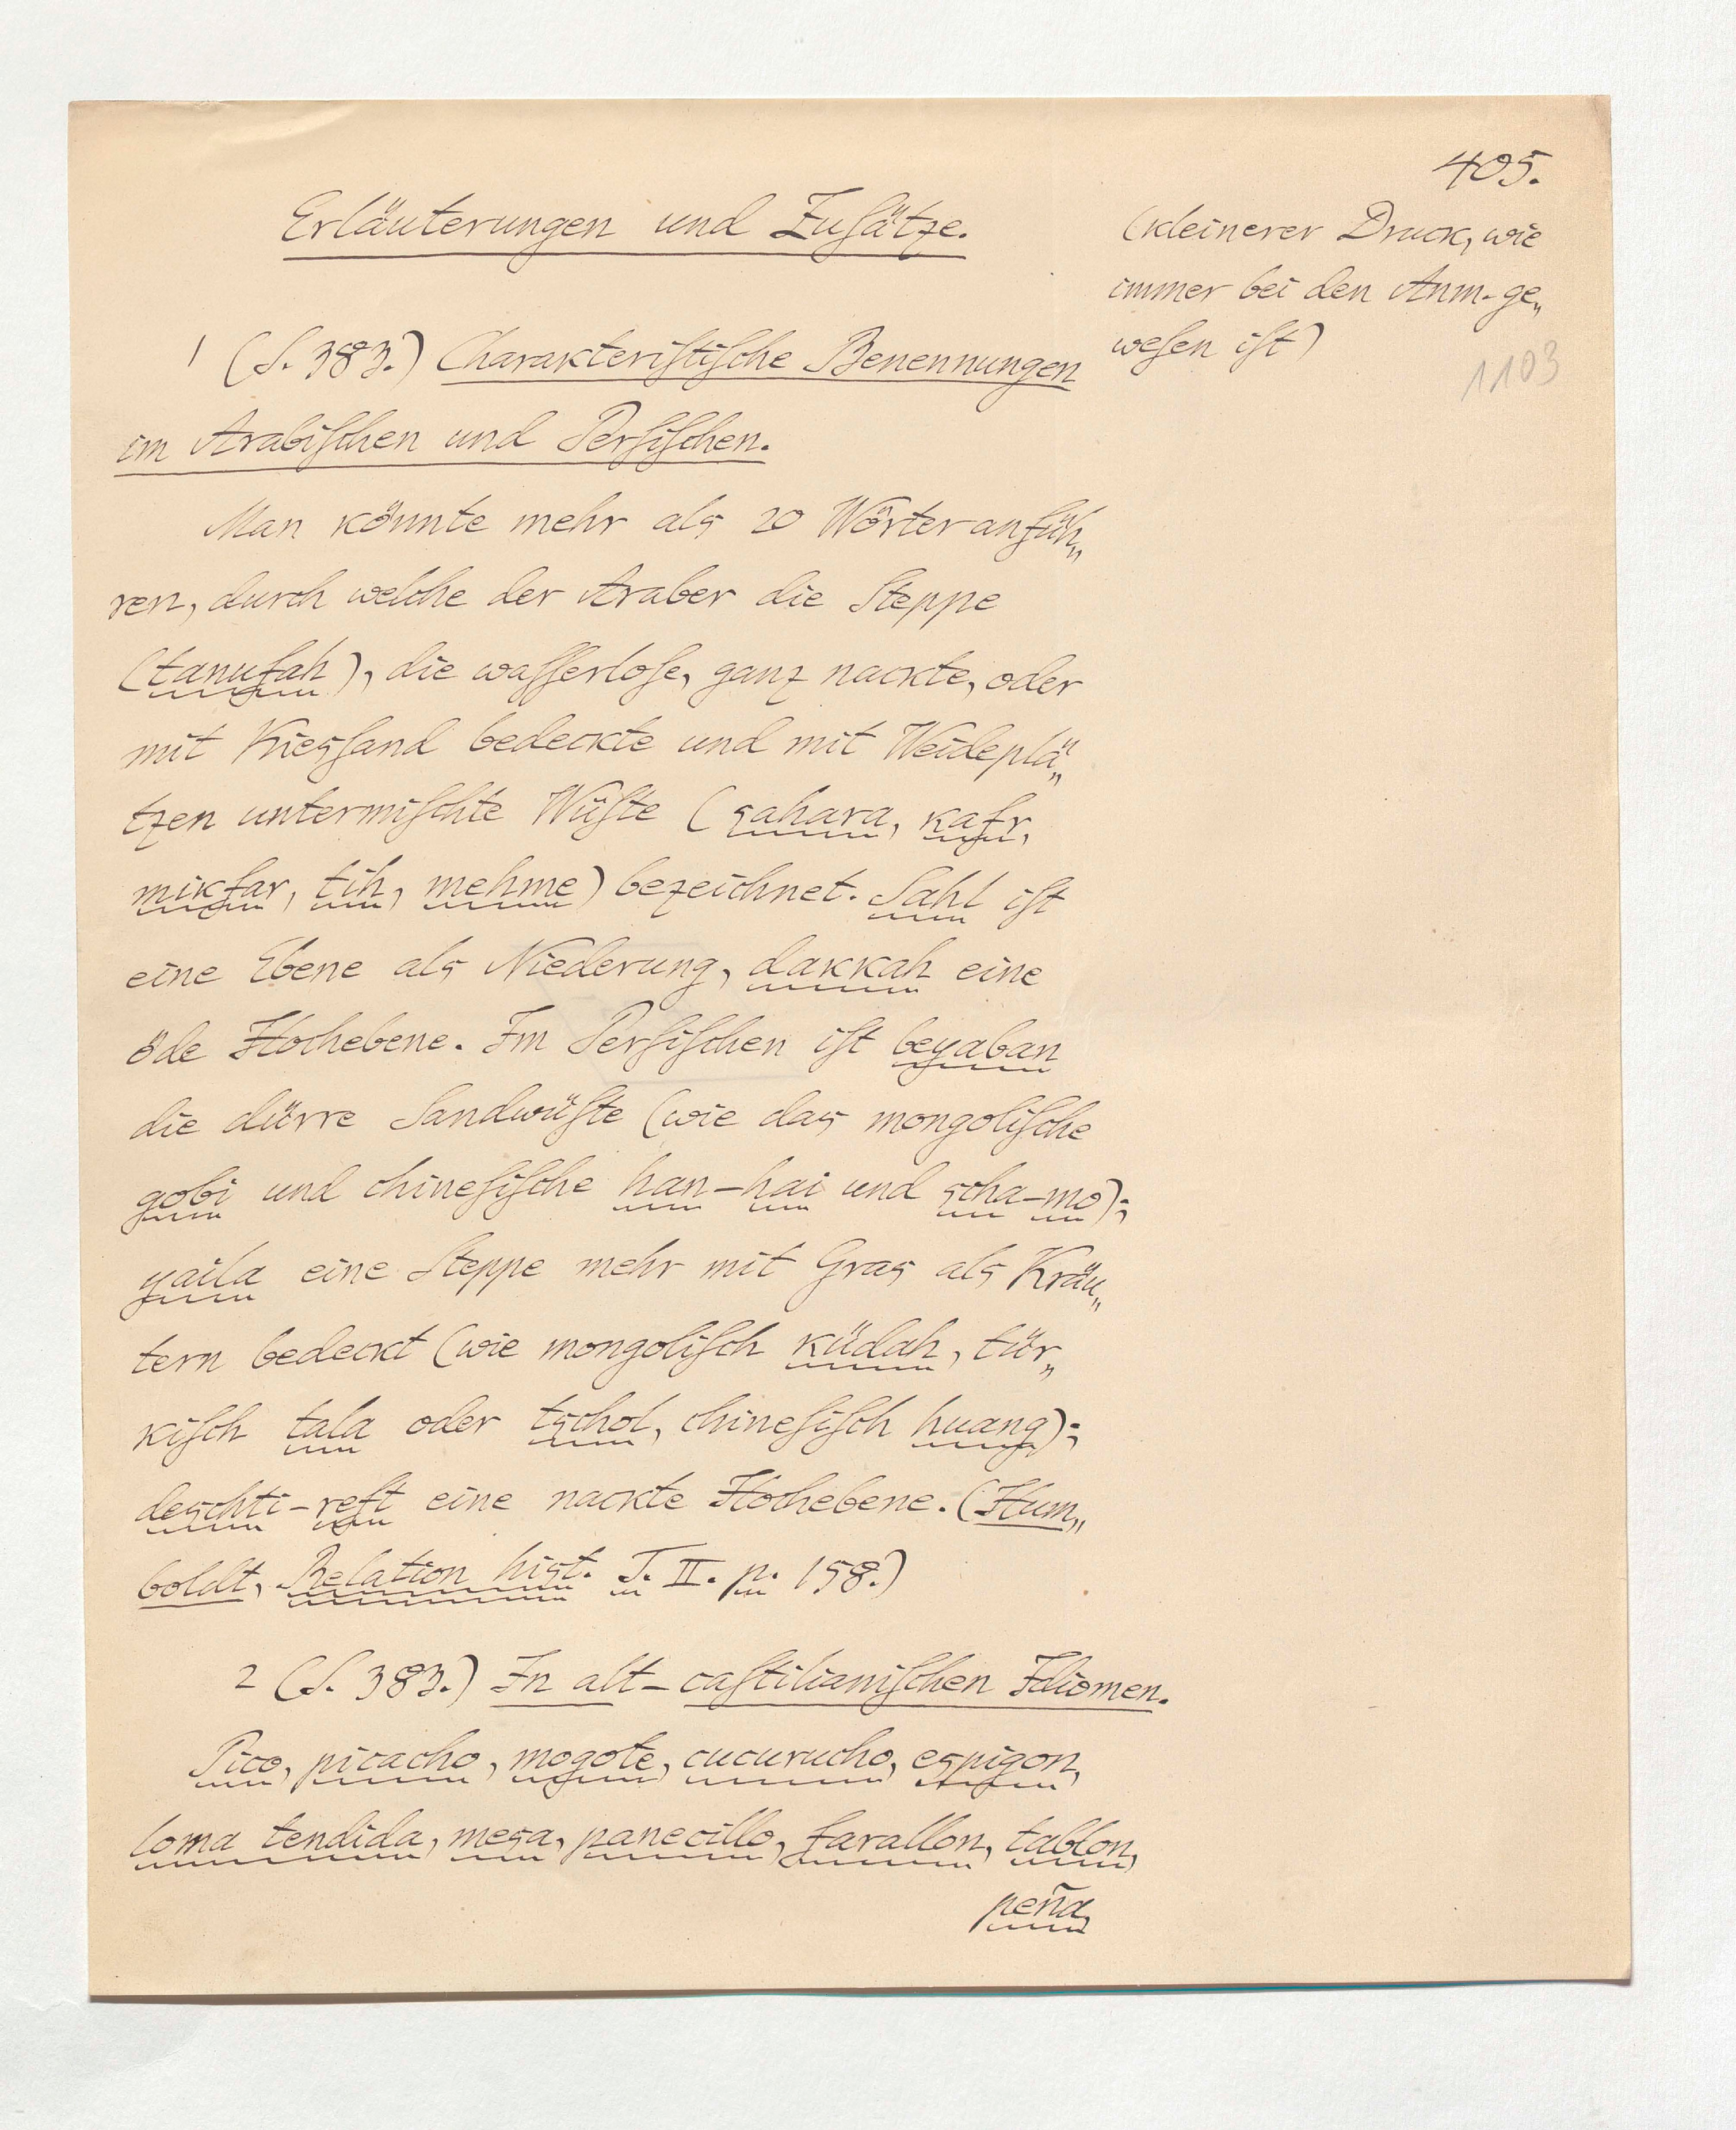 405.
Erläuterungen und Zuſätze.
(kleinerer Druck, wie
immer bei den Anm. ge„
weſen iſt)
1103
1 (S. 383.) Charakteriſtiſche Benennungen
im Arabiſchen und Perſiſchen.
Man könnte mehr als 20 Wörter anfüh„
ren, durch welche der Araber die Steppe
(tanufah), die waſſerloſe, ganz nackte, oder
mit Kiesſand bedeckte und mit Weideplä„
tzen untermiſchte Wüſte (sahara, kafr,
mikfar, tih, mehme) bezeichnet. Sahl iſt
eine Ebene als Niederung, dakkah eine
öde Hochebene. Im Perſiſchen iſt beyaban
die dürre Sandwüſte (wie das mongoliſche
gobi und chineſiſche han-hai und scha-mo);
yaila eine Steppe mehr mit Gras als Kräu„
tern bedeckt (wie mongoliſch küdah, tür„
kiſch tala oder tschol, chineſiſch huang);
deschti-reft eine nackte Hochebene. (Hum„
boldt, Relation hist. T. II. p. 158.)
2 (S. 383.) In alt-caſtilianiſchen Idiomen.
Pico, picacho, mogote, cucurucho, espigon,
loma tendida, mesa, panecillo, farallon, tablon,
peña,